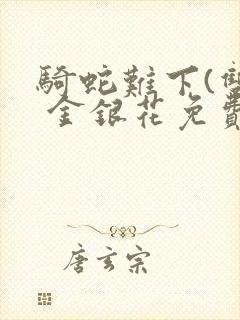 騎蛇難下(雙
金銀花免費
唐玄宗